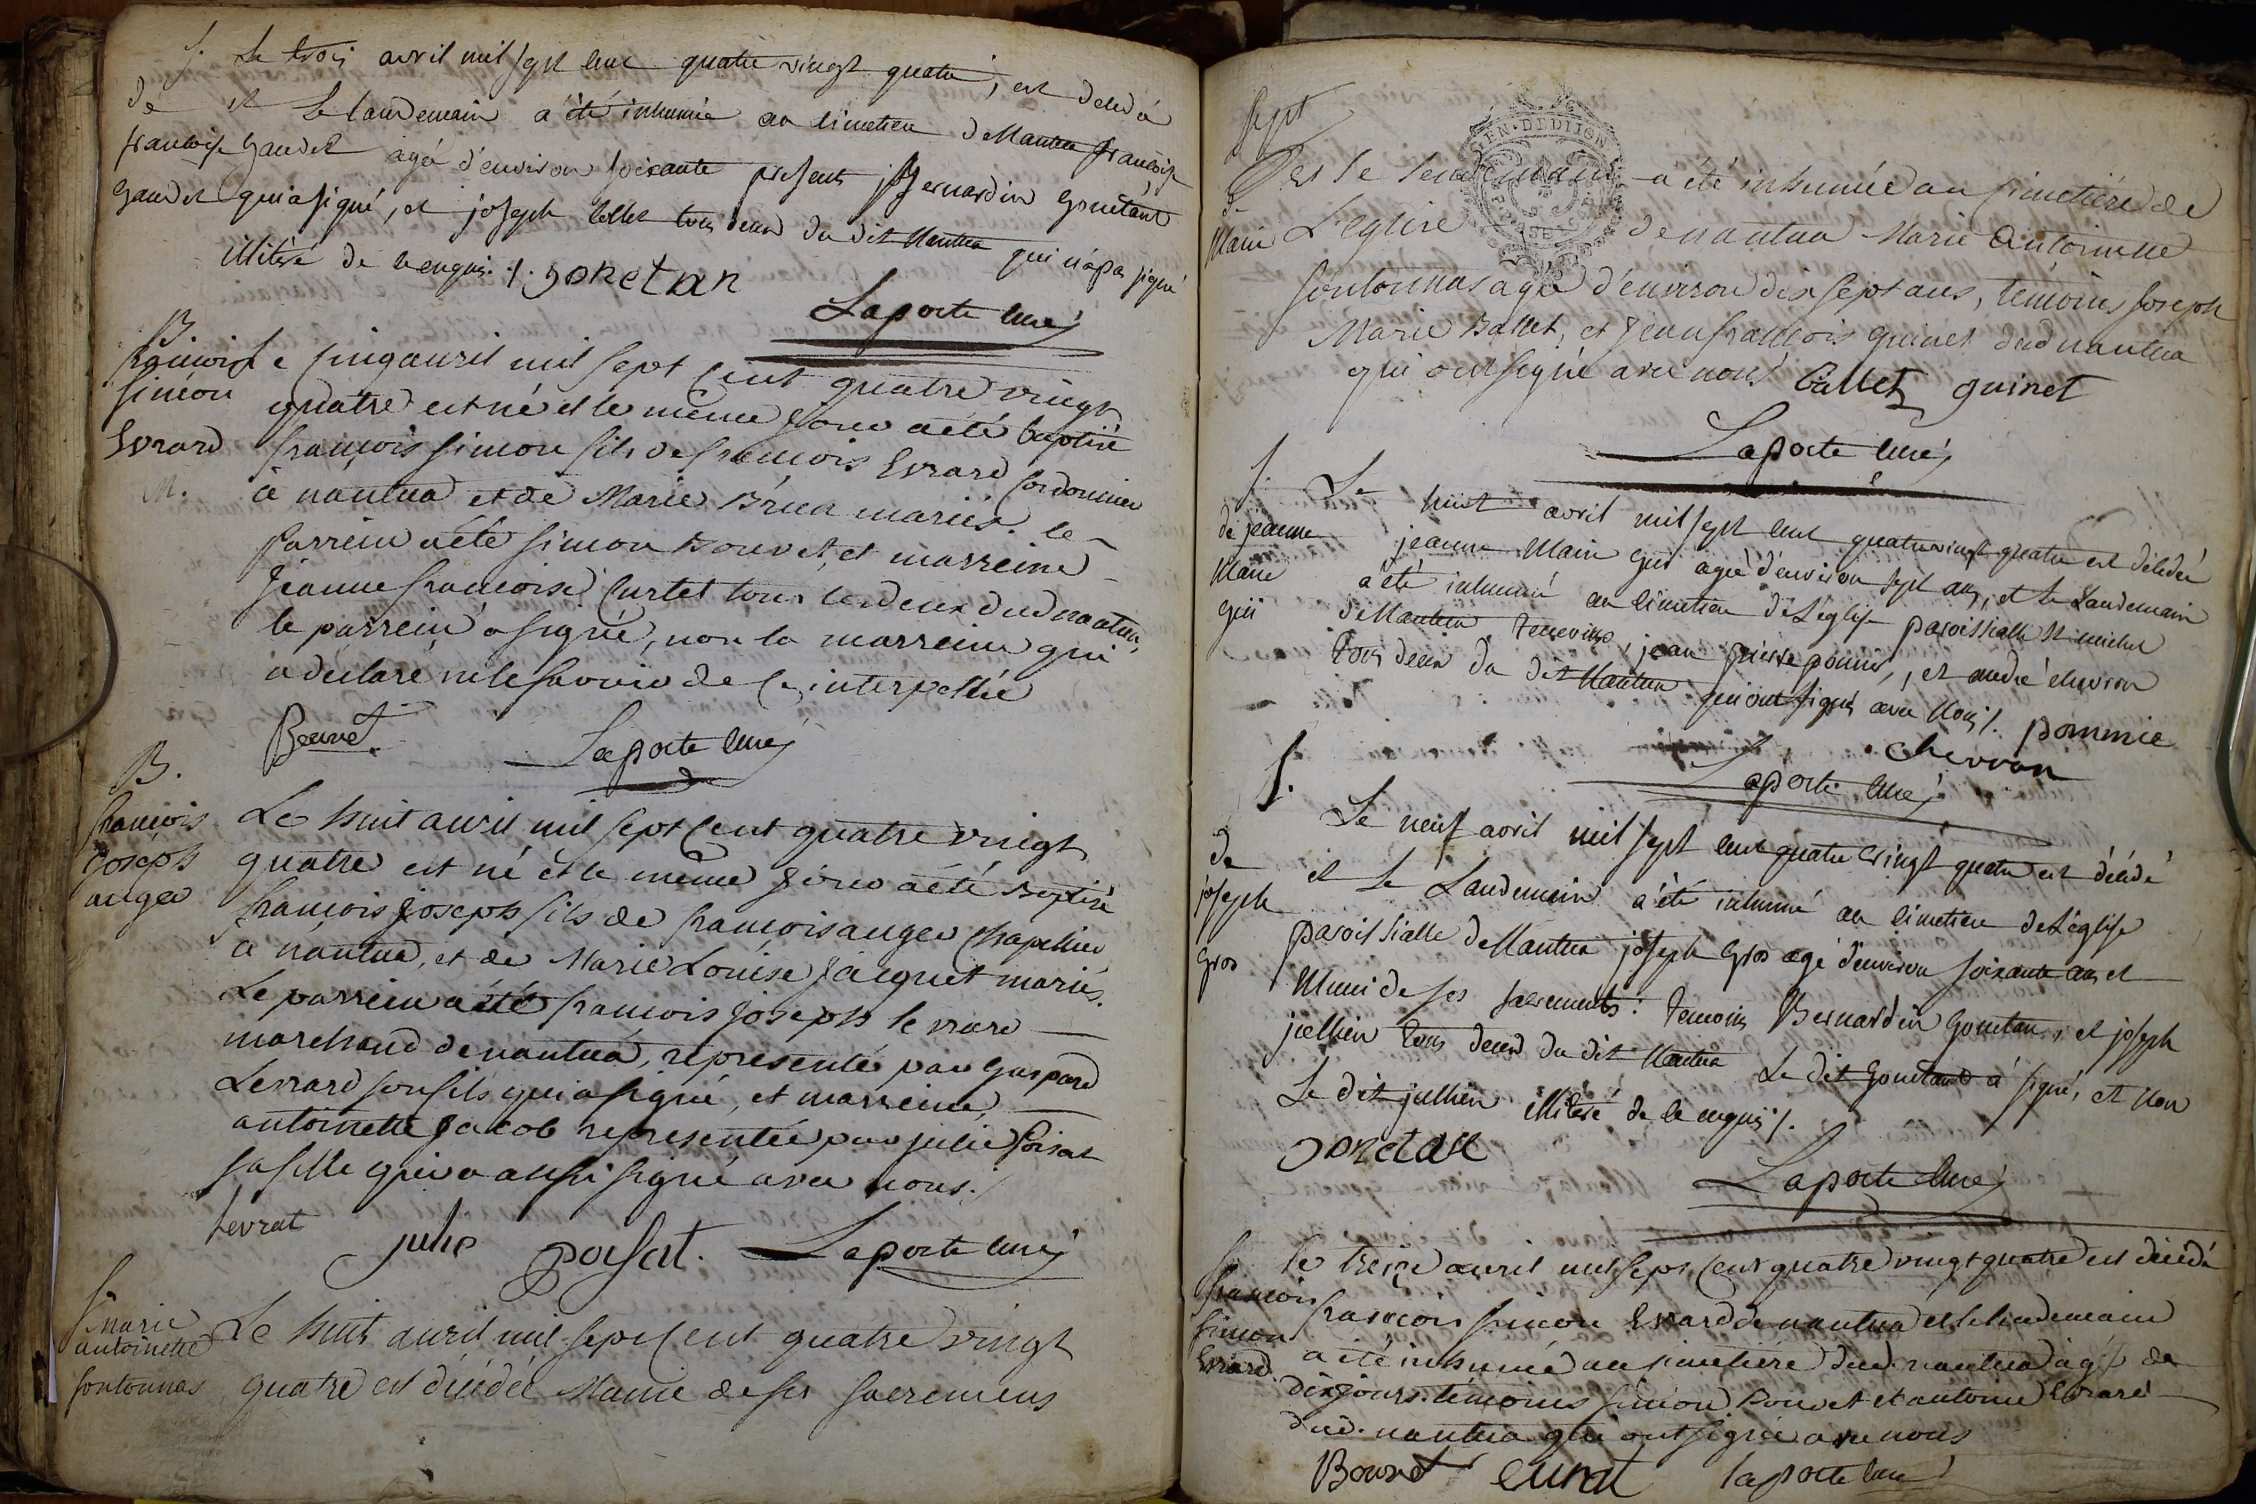 S.
de
françoise
Gaudet
Le trois avril mil sept cent quatre vingt quatre, est decedée
et Le Landemain a été inhumée au cimetiere de Nantua françoise
Gaudet agée d'environ soixante presents Bernardin Gonetant
qui a signé, et joseph tous deux du dit Nantua qui n'a pas signé
illitéré de ce enquis ./. gonetan
Laporte curé
B
françois
simeon
Evrard
Le cinq avril mil sept cent quatre vingt
quatre est né et le même jour a été baptisé
françois simeon fils de françois Evrard Cordonnier
à nantua et de Marie mariés. le
parrein a été simeon Bouvet, et marreine
Jeanne francoise Curtet tous les deux dud nantua,
le parrein a signé, non la marreine qui
a declaré ne le savoir de ce interpellée
Bouvet
Laporte curé
B.
françois
Joseph
auger
Le huit avril mil sept cent quatre vingt
quatre est né et le même jour a été Baptisé
françois Joseph fils de françois auger Chapellier
à nantua, et de Marie Louise Jacquet mariés.
Le parrein a été françois Joseph levrard
marchand de nantua, representé par Gaspard
Levrard son fils qui a signé, et marreine,
antoinette Jacob representée par julie Poisat
sa fille qui a aussi signé avec nous ./
Levrat julie poisat. Laporte curé
S.
Marie
antoinette
Sontonnas
Le huit avril mil sept Cent quatre vingt
quatre est décédée Munie de ses sacremens
Sept
S.
de
Marie
et le lendemain a été inhumée au cimetière de
L'église de nantua Marie Antoinette
Sontonnas agée d'environ dix sept ans, témoins Joseph
Marie Ballet, et Jean françois guinet dud nantua
qui ont signé avec nous Ballet guinet
Laporte curé
S.
de jeanne
Marie
gui
Le huit avril mil sept cent quatre vingt quatre est décédée
jeanne Marie gui agée d'environ sept ans, et le Landemain
a été inhumé au cimetiere de L'église paroissialle St michel
de Nantua temoins, jean pierre pomié, et andré chevron
tous deux du dit Nantua qui ont signés avec nous ./. pommié
chevron
Laporte curé
S.
de
joseph
Gros
Le neuf avril mil sept cent quatre vingt quatre est décédé
et Le Landemain a été inhumé au cimetiere de L'église
paroissialle de Nantua joseph Gros agé d'environ soixante ans et
Muni de ses sacrements: temoins Bernardin Gonetan, et joseph
jullien tous deux du dit Nantua Le dit Gonetant a signé, et non
Le dit jullien illitéré de ce enquis ./.
gonetan
Laporte curé
S.
françois
simeon
Evrard
Le treize avril mil sept Cent quatre vingt quatre est décédé
francois simeon Evrard de nantua et le lendemain
a été inhumé au cimetière dud. nantua agé de
dix jours. témoins simeon Bouvet et antoine Evrard
dud. nantua qui ont signé avec nous
Bouvet evrat laporte curé